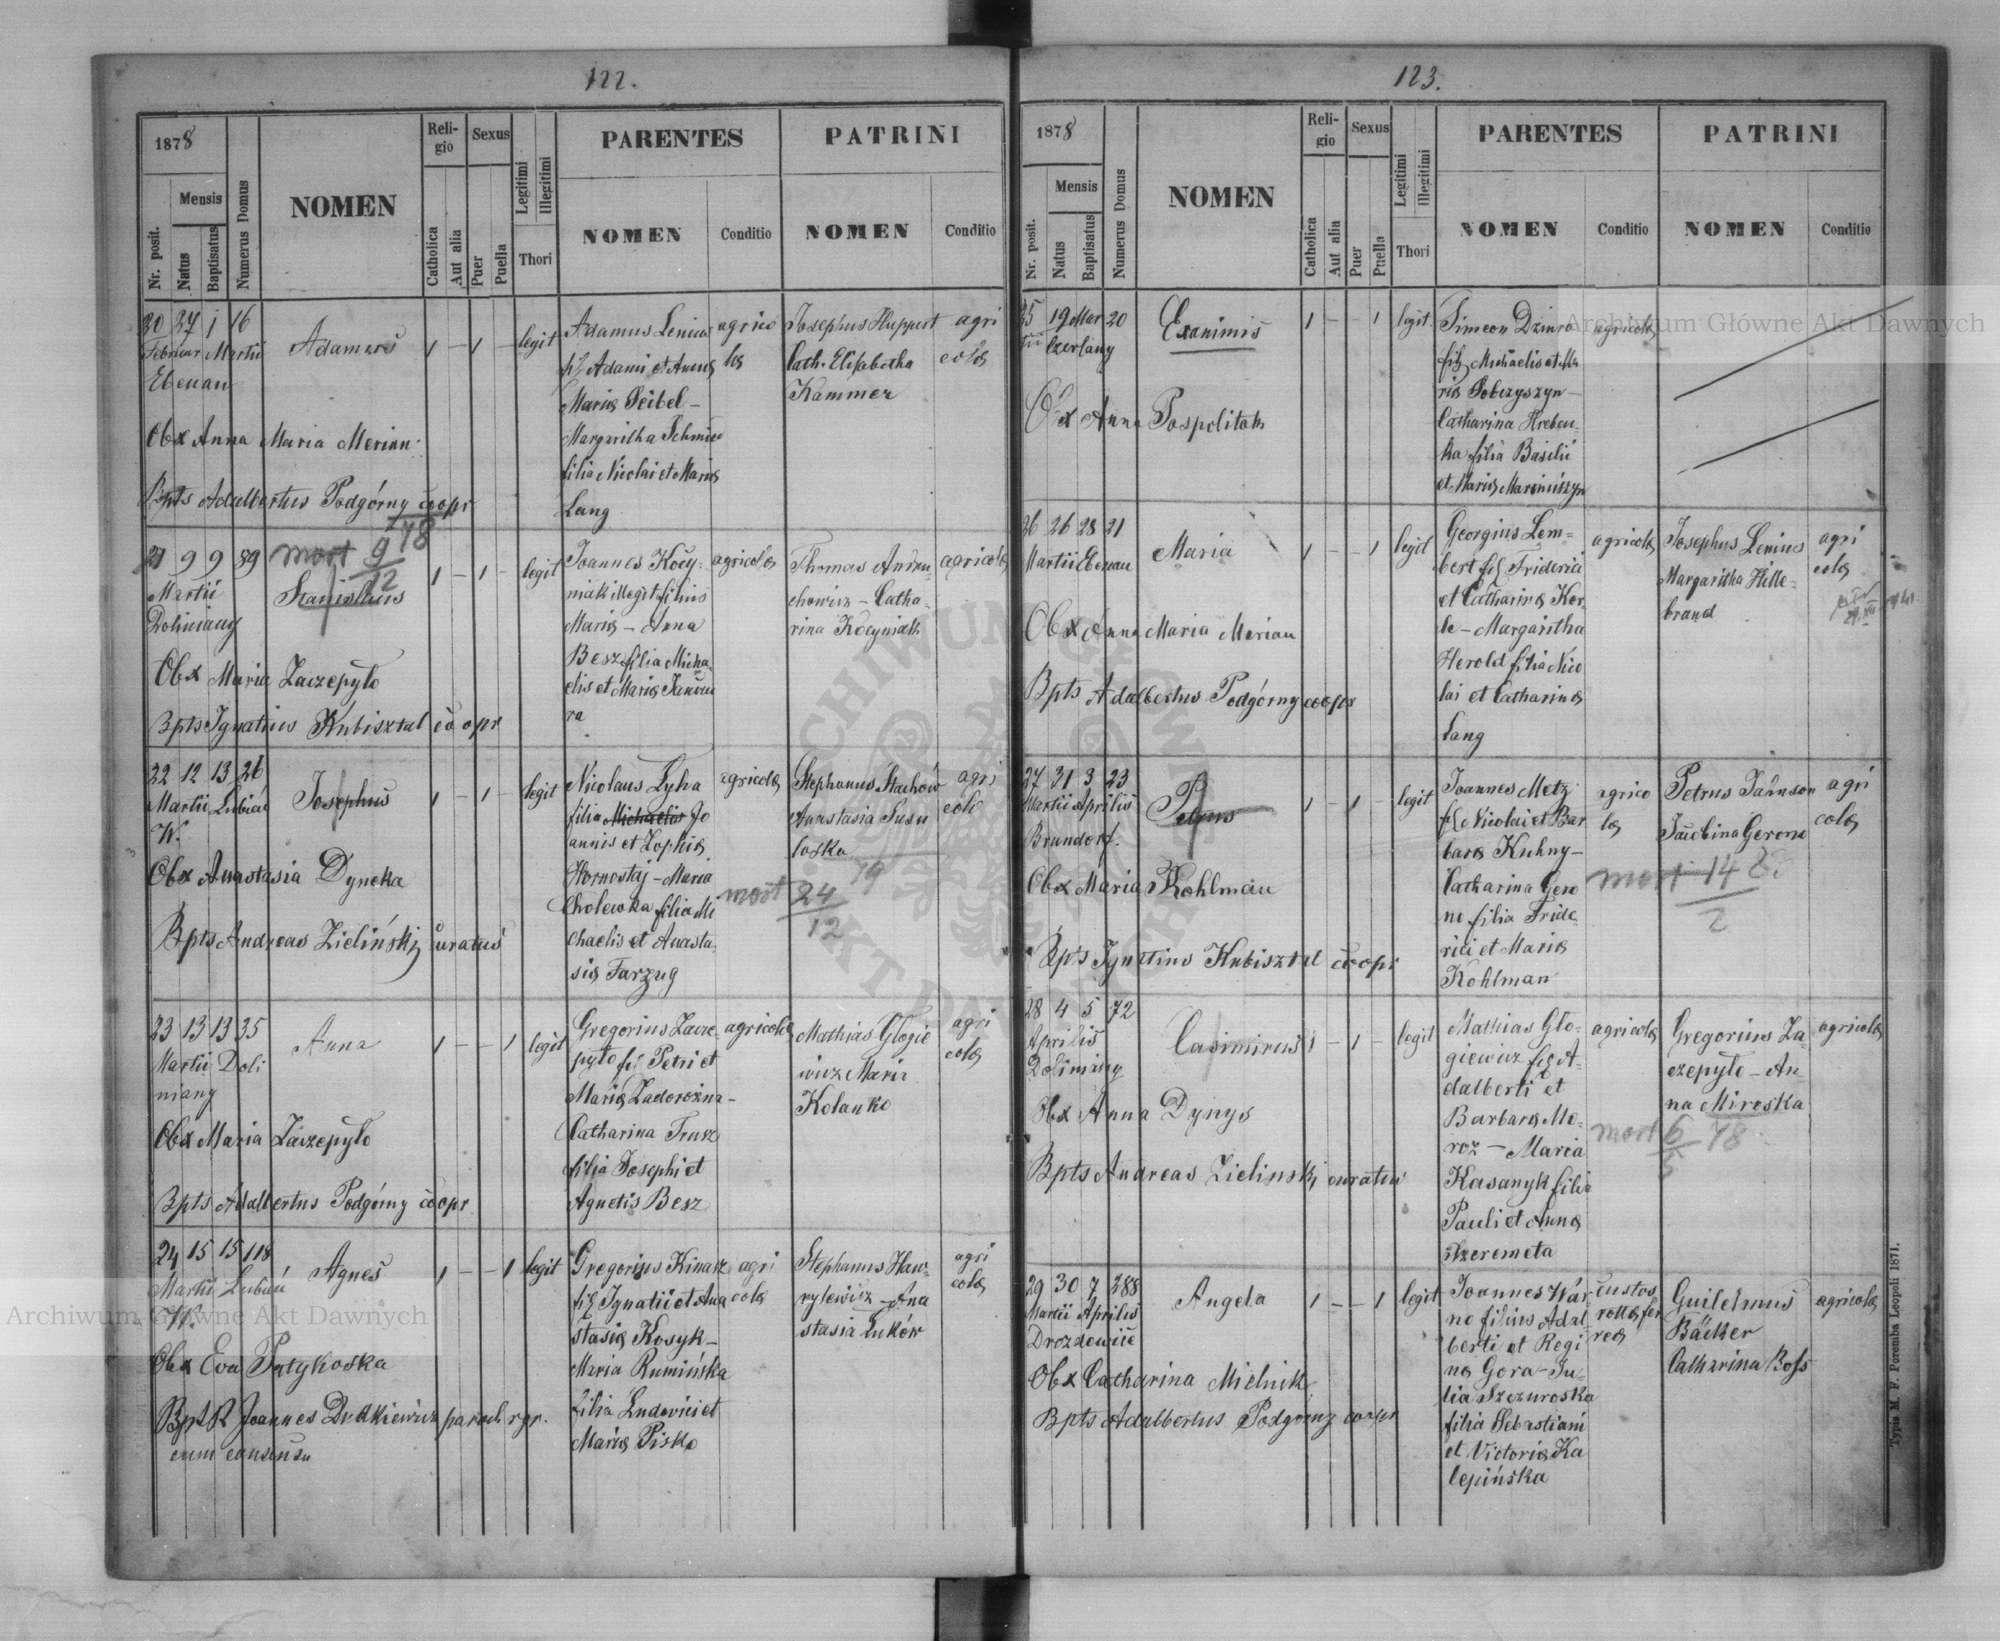 122.
1878
Nr. posit.
Mensis
Natus
Baptisatus
Numerus Domus
NOMEN
Religio
Catholica
Aut alia
Sexus
Puer
Puella
Legitimi
Illegitimi
Thori
PARENTES
NOMEN
Conditio
PATRINI
NOMEN
Conditio
20 27 1 16
Februar Martii
Ebenau
Adamus
1 - 1 -
legit
Adamus Lenius
fil Adami et Annæ
Mariæ Peibel -
Margaritha Schmidt
filia Nicolai et Mariæ
Lang
agrico
læ
Josephus Huppert
Cath. Elisabetha
Kammer
agri
colæ
Obx Anna Maria Merian
Bpts Adalbertus Podgórny coopr
21 9 9 89
Martii
Doliniany
mort 9/12 78
Stanislaus
1 - 1 -
legit
Joannes Kocy-
niak illegit filius
Mariæ - Anna
Besz filia Micha
elis et Mariæ
ra
agricolæ
Thomas Andru-
chowicz - Catha-
rina Kocyniak
agricolæ
Obx Maria Zaczepyło
Bpts Ignatius Kubisztal coopr
22 12 13 26
Martii Lubień
W.
Josephus
1 - 1 -
legit
Nicolaus Lyha
filia Michaelis Jo
annis et Zophiæ
Hornostaj - Maria
Cholewka filia Mi
chaelis et Anasta-
siæ Farzug
agricolæ
Stephanus Stachów
Anastasia Susu
łoska
agri
colæ
mort 24/12 79
Obx Anastasia Dyneka
Bpts Andreas Zieliński curatus
23 13 13 35
Martii Doli
niany
Anna
1 - - 1
legit
Gregorius Zacze-
pyło fil Petri et
Mariæ Zadorożna -
Catharina Trusz
filia Josephi et
Agnetis Besz
agricolæ
Mathias Głogie
wicz Maria
Kolanko
agri
colæ
Obx Maria Zaczepyło
Bpts Adalbertus Podgórny coopr
24 15 15 118
Martii Lubień
W.
Agnes
1 - - 1
legit
Gregorius Kinasz
fil Ignatii et Ana
stasiæ Kosyk -
Maria Rumińska
filia Ludovici et
Mariæ Pisko
agri
colæ
Stephanus Haw-
rylewicz - Ana
stasia Łuków
agri
colæ
Obx Eva Patykoska
Bpt R Joannes paroch rgr.
cum consensu
123.
1878
Nr. posit.
Mensis
Natus
Baptisatus
Numerus Domus
NOMEN
Religio
Catholica
Aut alia
Sexus
Puer
Puella
Legitimi
Illegitimi
Thori
PARENTES
NOMEN
Conditio
PATRINI
NOMEN
Conditio
25 19 Mar 20
tii Czerlany
Exanimis
1 - - 1
legit
Simeon Dziuro
fil Michaelis et Ma
riæ Sobczyszyn -
Catharina Hreben-
ka filia Basilii
et Mariæ Marciniszyn
agricolæ
Obx Anna Pospolitak
26 26 28 21
Martii Ebenau
Maria
1 - - 1
legit
Georgius Lem-
bert fil Friderici
et Catharinæ Ker-
le - Margaritha
Herold filia Nico
lai et Catharinæ
Lang
agricolæ
Josephus Lenius
Margaritha Hille-
brand
agri
colæ
Obx Anna Maria Merian
Bpts Adalbertus Podgórny coopr
27 31 3 23
Martii Aprilis
Brundorf.
Petrus
1 - 1 -
legit
Joannes Metz
fil Nicolai et Bar
baræ Kuhny -
Catharina Gero
no filia Fride-
rici et Mariæ
Kohlman
agrico
læ
Petrus Jahnson
Jacobina Gerono
agri
colæ
mort 14/2
Obx Maria Kohlman
Bpts Ignatius Kubisztal coopr
28 4 5 72
Aprilis
Doliniany
Casimirus
1 - 1 -
legit
Mathias Gło-
giewicz fil A-
dalberti et
Barbaræ Mo-
roz - Maria
Kasanyk filia
Pauli et Annæ
Szeremeta
agricolæ
Gregorius Za-
czepyło - An-
na Miroska
agricolæ
mort 6/5 78
Obx Anna Dynys
Bpts Andreas Zielinski curatus
29 30 7 288
Martii Aprilis
Drozdowice
Angela
1 - - 1
legit
Joannes War-
no filius Adal-
berti et Regi
næ Gora - Ju-
lia Szczuroska
filia Sebastiani
et Victoriæ Ka
lepińska
custos
rottæ fer
reæ
Guilelmus
Bäcker
Catharina Boſs
agricolæ
Obx Catharina Mielnik
Bpts Adalbertus Podgorny coopr
Typis M. F. Poremba Leopoli 1871.
Archiwum Główne Akt Dawnych
Archiwum Główne Akt Dawnych